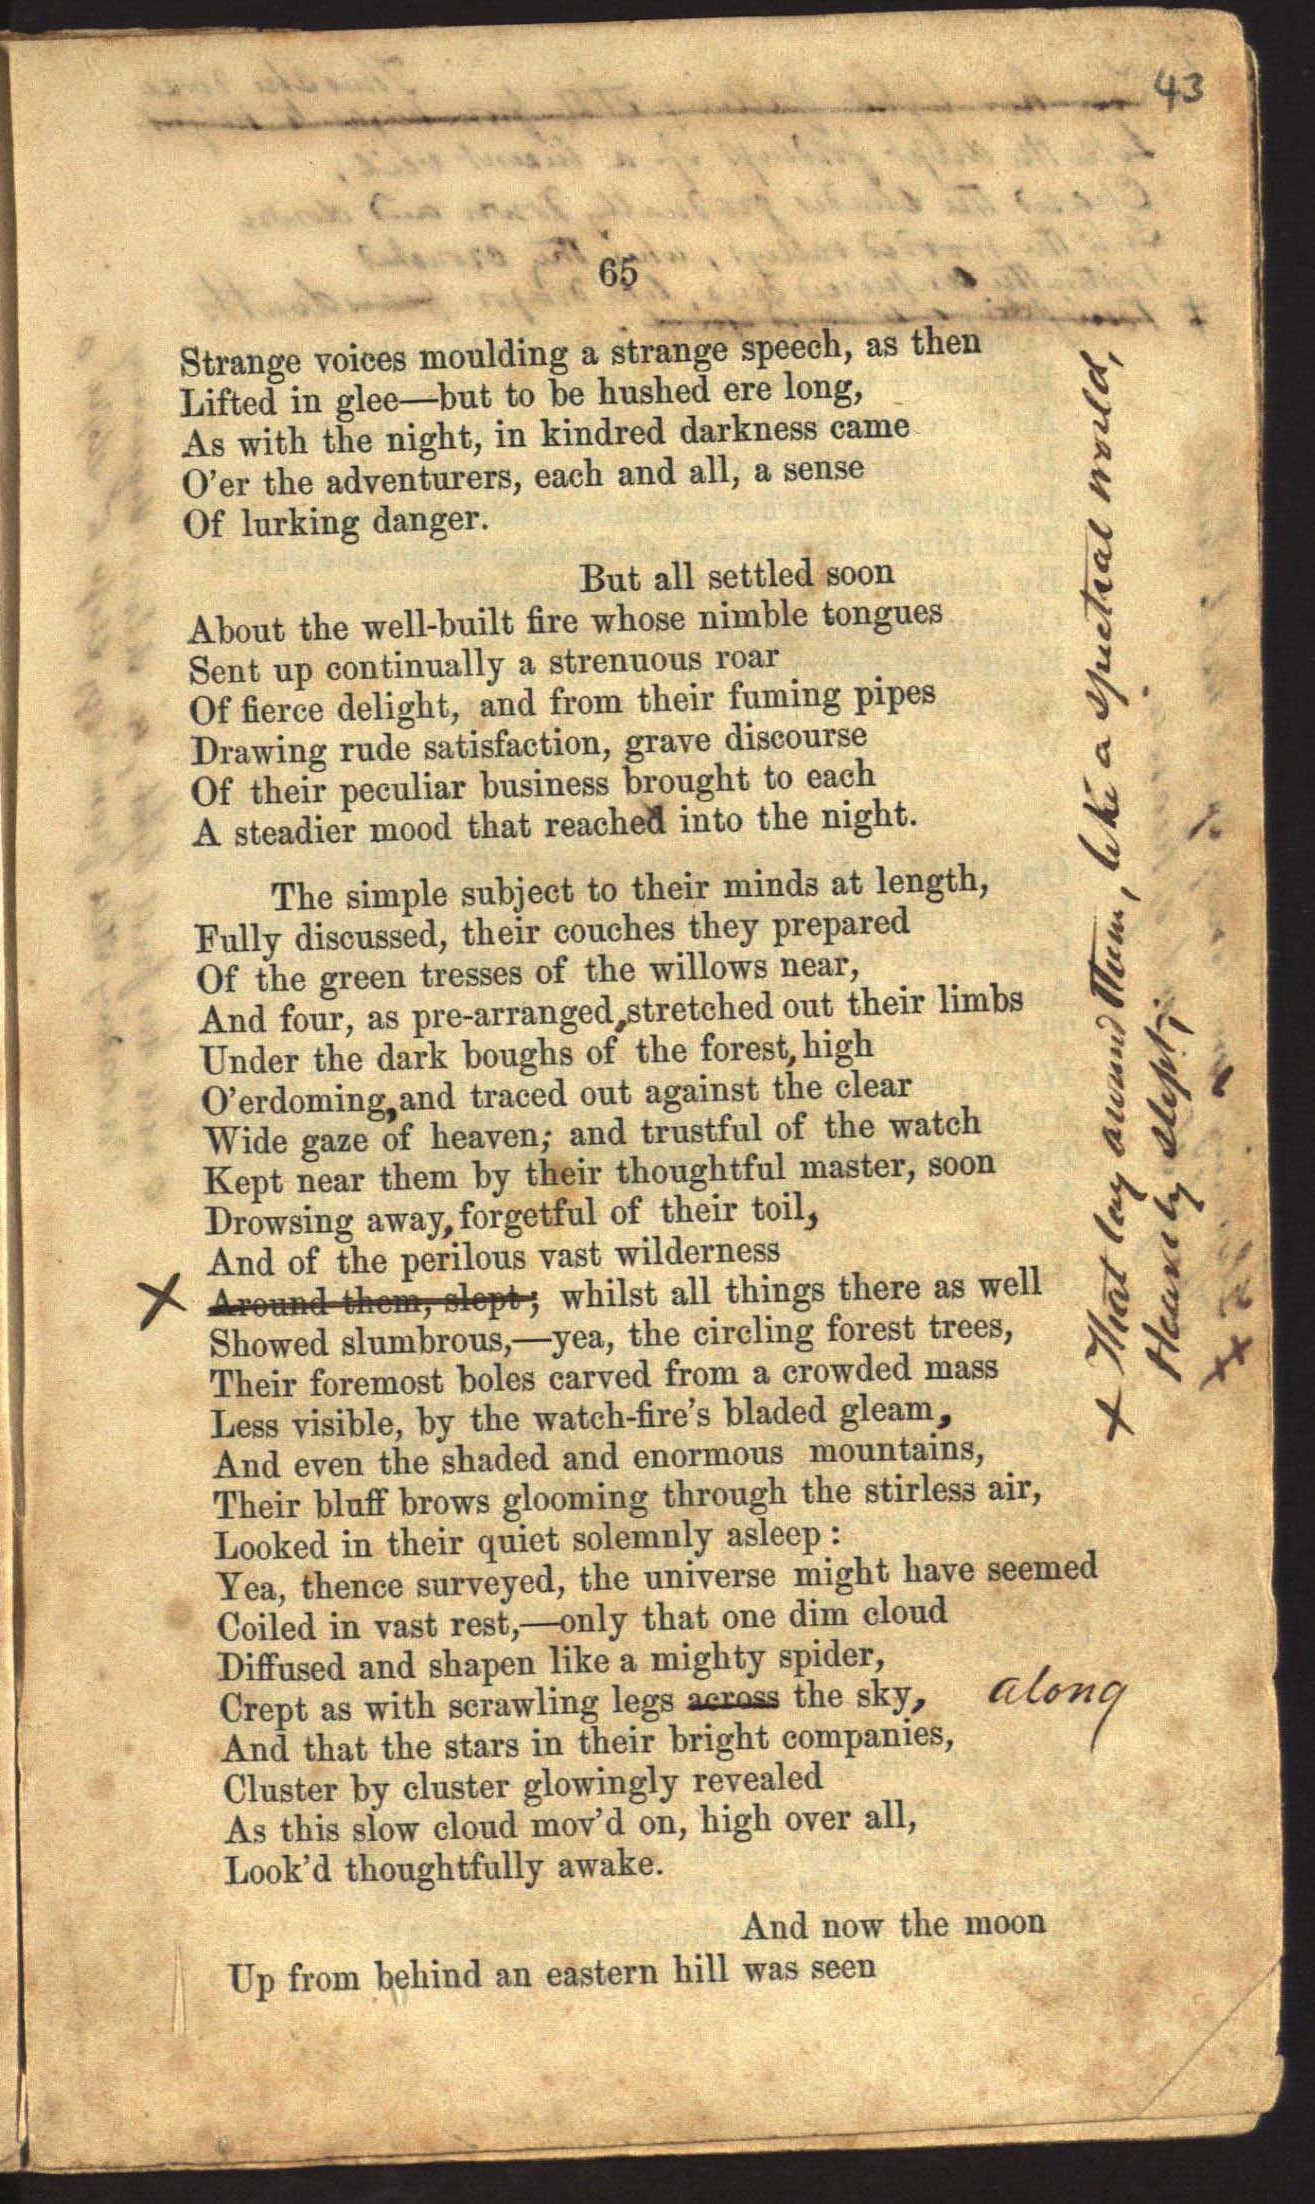 43
65
Strange voices moulding a strange speech, as then
Lifted in glee—but to be hushed ere long,
As with the night, in kindred darkness came
O'er the adventurers, each and all, a sense
Of lurking danger.
But all settled soon
About the well-built fire whose nimble tongues
Sent up continually a strenuous roar
Of fierce delight, and from their fuming pipes
Drawing rude satisfaction, grave discourse
Of their peculiar business brought to each
A steadier mood that reached into the night.
The simple subject to their minds at length,
Fully discussed, their couches they prepared
Of the green tresses of the willows near,
And four, as pre-arranged, stretched out their limbs
Under the dark boughs of the forest, high
O'erdoming, and traced out against the clear
Wide gaze of heaven; and trustful of the watch
Kept near them by their thoughtful master, soon
Drowsing away, forgetful of their toil,
And of the perilous vast wilderness
X Around them, slept; whilst all things there as well
Showed slumbrous,—yea, the circling forest trees,
Their foremost boles carved from a crowded mass
Less visible, by the watch-fire's bladed gleam,
And even the shaded and enormous mountains,
Their bluff brows glooming through the stirless air,
Looked in their quiet solemnly asleep:
Yea, thence surveyed, the universe might have seemed
Coiled in vast rest,—only that one dim cloud
Diffused and shapen like a mighty spider,
Crept as with scrawling legs across the sky, along
And that the stars in their bright companies,
Cluster by cluster glowingly revealed
As this slow cloud mov'd on, high over all,
Look'd thoughtfully awake.
And now the moon
Up from behind an eastern hill was seen
X That lay around them, like a spectral world,
Heavily slept;